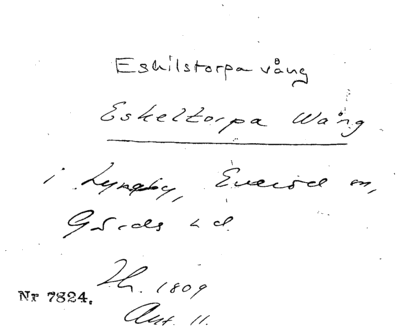 Eskilstorpa vång
Eskeltorpa Wång
i Lyngby, Everöd sn,
Gärds hd.
Nr 7824.
1809
Ant. 11.